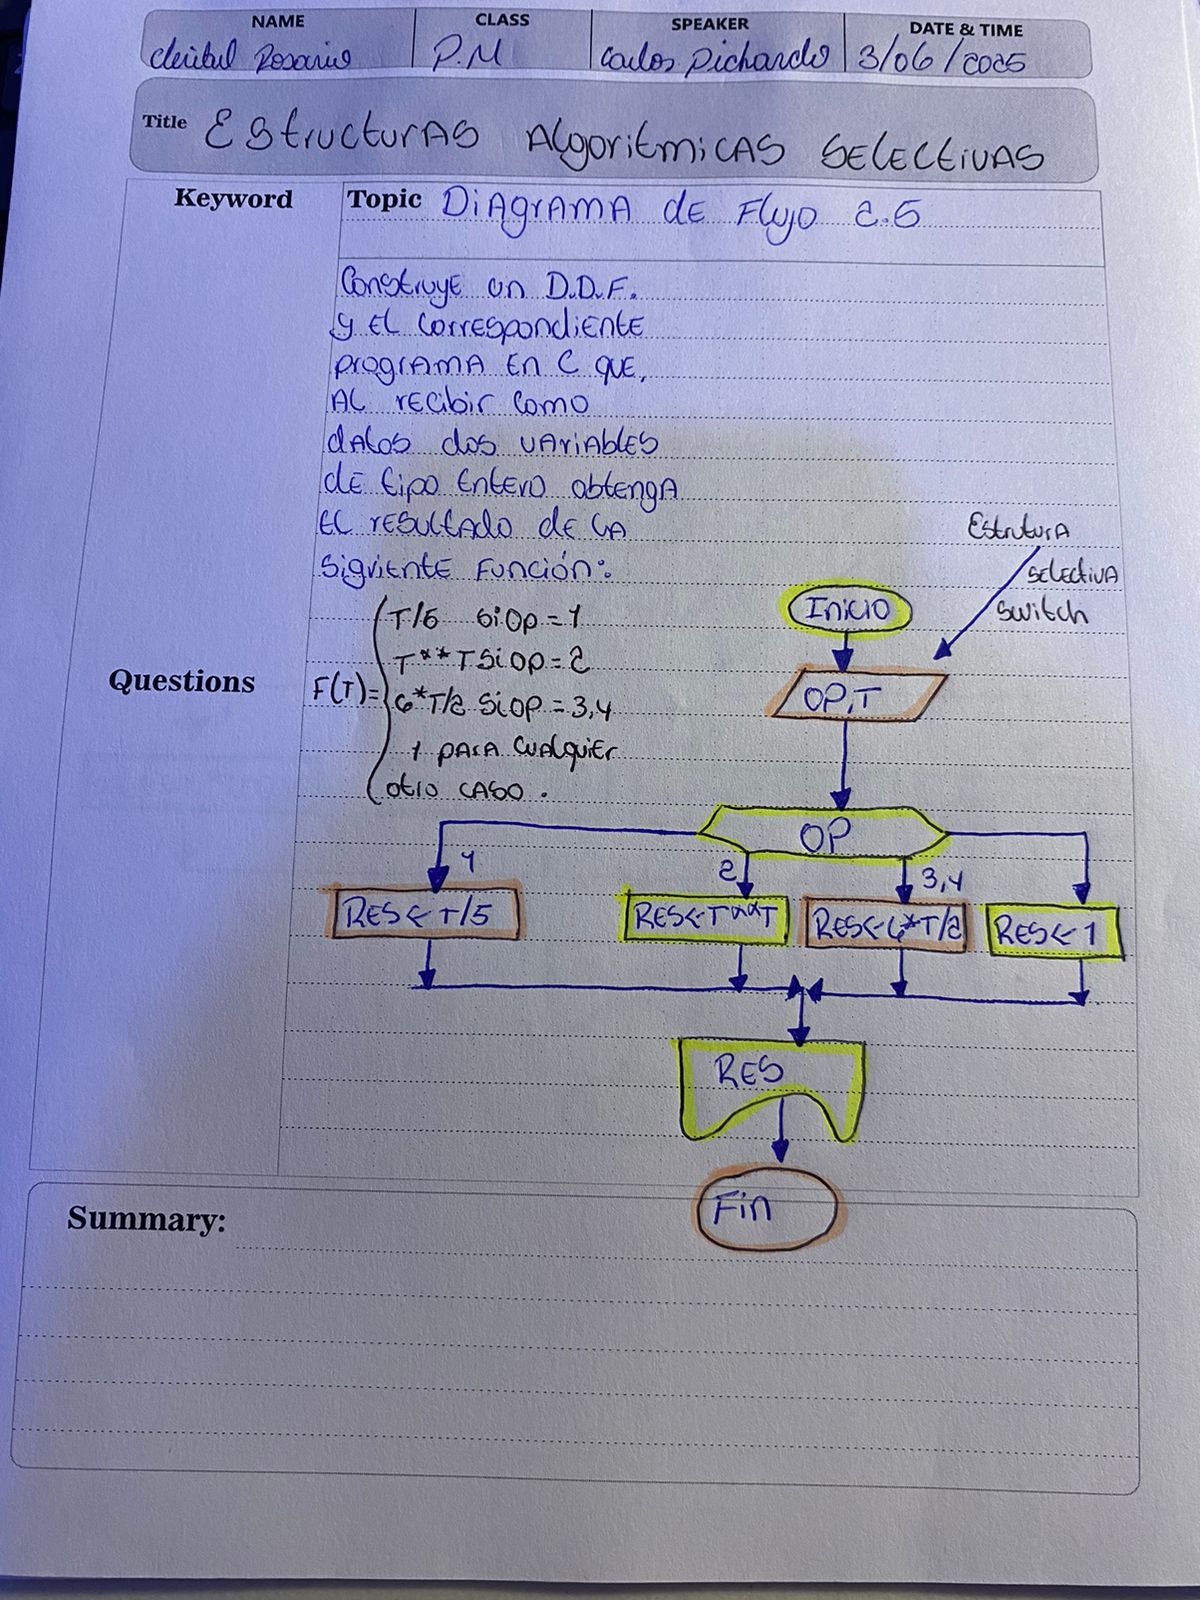 NAME CLASS SPEAKER DATE & TIME
Rosario P.M Carlos Pichardo 3/06/2025
Title Estructuras Algoritmicas Selectivas
Keyword Topic Diagrama de Flujo 2.5
Construye un D.D.F.
y el correspondiente
programa en C que,
al recibir como
datos dos variables
de tipo entero obtenga
el resultado de la
siguiente función:
Estrutura
selectiva
switch
Inicio
T/5 si Op = 1
T**T Si Op = 2
Questions
F(T)= 6*T/2 Si Op = 3,4
1 para cualquier
otro caso.
OP,T
OP
1 2 3,4
RES ← T/5 RES ← T**T RES ← 6*T/2 RES ← 1
RES
Fin
Summary: